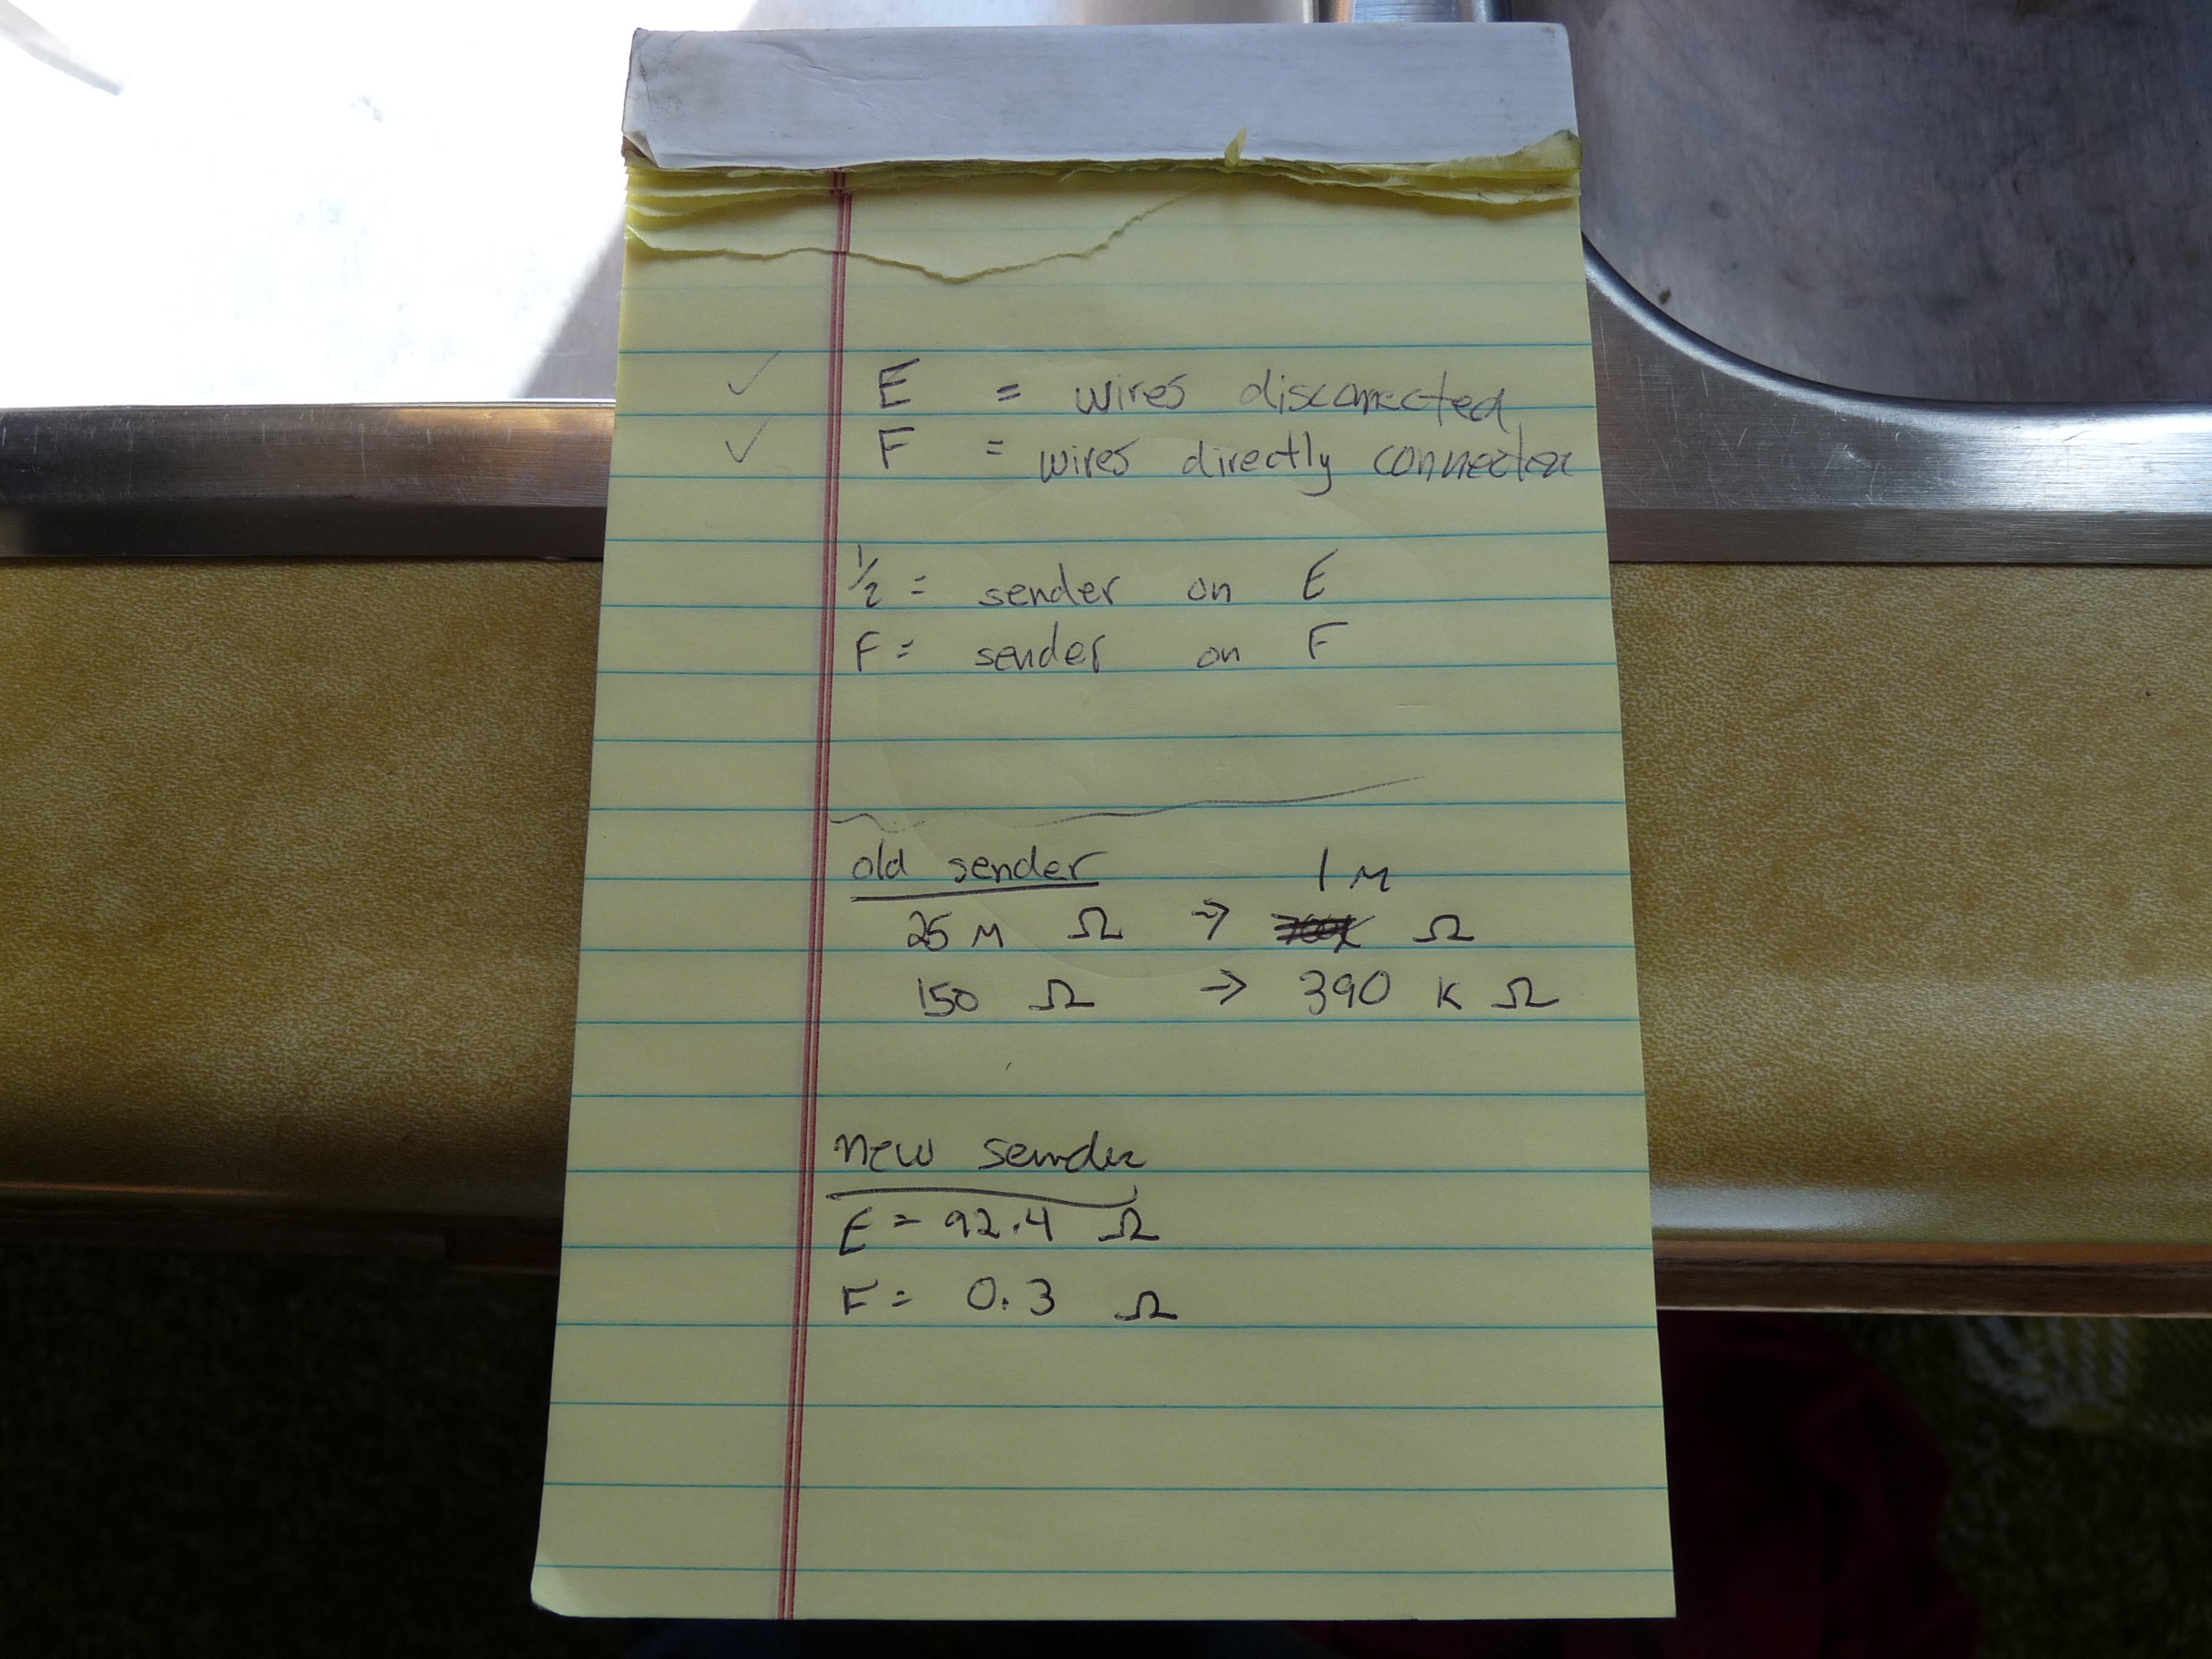 ✓ E = wires disconnected
✓ F = wires directly connected
1/2 = sender on E
F = sender on F
old sender
1 M
25 M Ω → Ω
150 Ω → 390 K Ω
new sender
E = 92.4 Ω
F = 0.3 Ω